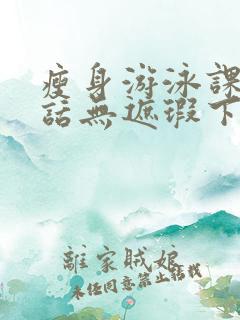 瘦身游泳課
話無遮瑕下
離家賊娘
未经同意禁止轉載